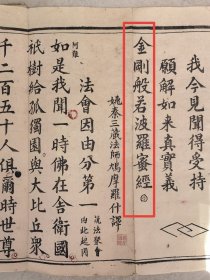 我今見聞得受持
願解如來真實義
金剛般若波羅蜜經
姚秦三藏法師鳩摩羅什譯
法會因由分第一
如是我聞一時佛在舍衛國
祇樹給孤獨園與大比丘眾
千二百五十人俱爾時世尊